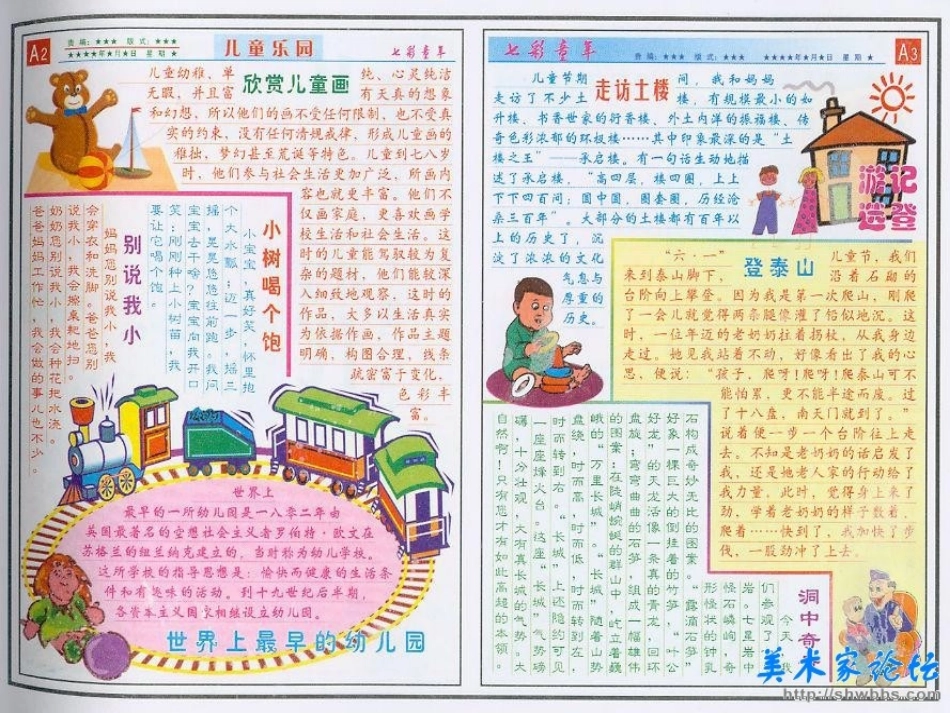 A2
责 编：★★★ 版 式：★★★
★★★★年★月★日 星 期 ★
儿童乐园
七彩童年
欣赏儿童画
儿童幼稚、单纯、心灵纯洁
无暇，并且富有天真的想象
和幻想，所以他们的画不受任何限制，也不受真
实的约束、没有任何清规戒律，形成儿童画的
稚拙，梦幻甚至荒诞等特色。儿童到七八岁
时，他们参与社会生活更加广泛，所画内
容也就更丰富。他们不
仅画家庭，更喜欢画学
校生活和社会生活。这
时的儿童能驾驭较为复
杂的题材，他们能较深
入细致地观察，这时的
作品，大多以生活真实
为依据作画，作品主题
明确，构图合理，线条
疏密富于变化，
色彩丰
富。
小树喝个饱
小宝宝，真好笑，怀里抱
个大水瓢；迈一步，摇三
摇，晃晃悠悠往前跑。我问
宝宝去干啥？宝宝向我开口
笑：刚刚种上小树苗，我
要让它喝个饱。
别说我小
妈妈您别说我小，我
会穿衣和洗脚。爸爸您别
说我小，我会擦桌耙地扫。
奶奶您别说我小，我会种花把水浇。
爸爸妈妈工作忙，我会做的事儿也不少。
世界上
最早的一所幼儿园是一八〇二年由
英国最著名的空想社会主义者罗伯特·欧文在
苏格兰的纽兰纳克建立的，当时称为幼儿学校。
这所学校的指导思想是：愉快而健康的生活条
件和有趣味的活动。到十九世纪后半期，
各资本主义国家相继设立幼儿园。
世界上最早的幼儿园
七彩童年
责 编：★★★ 版 式：★★★
★★★★年★月★日 星 期 ★
A3
走访土楼
儿童节期间，我和妈妈
走访了不少土楼，有规模最小的如
升楼、书香世家的衍香楼、外土内洋的振福楼、传
奇色彩浓郁的环极楼……其中印象最深的是“土
楼之王”——承启楼。有一句话生动地描
述了承启楼，“高四层，楼四圈，上上
下下四百间；圆中圆，圈套圈，历经沧
桑三百年”。大部分的土楼都有百年以
上的历史了，沉
淀了浓浓的文化
气息与
尊重的
历史。
游记
选登
登泰山
“六·一”儿童节，我们
来到泰山脚下，沿着石砌的
台阶向上攀登。因为我是第一次爬山，刚爬
了一会儿就觉得两条腿像灌了铅似地沉。这
时，一位年迈的老奶奶拄着拐杖，从我身边
走过。她见我站着不动，好像看出了我的心
思，便说：“孩子，爬呀！爬呀！爬泰山可不
能怕累，更不能半途而废。过
了十八盘，南天门就到了。”
说着便一步一个台阶往上走
去。不知是老奶奶的话启发了
我，还是她老人家的行动给了
我力量。此时，觉得身上来了
劲，学着老奶奶的样子数着，
爬着……快到了，我加快了步
伐，一股劲冲了上去。
洞中奇
今天，我
们参观了
岩。七星岩中
怪石嶙峋，奇
形怪状的钟乳
石构成奇妙无比的图案。“露滴石笋”
好象一棵巨大的倒挂着的竹笋，“叶公
好龙”的天龙活像一条真的青龙，回环
盘旋；弯弯曲曲的石笋，组成一幅雄伟
的图案：在陡峭蜿蜒的群山中，屹立着巍
峨的“万里长城”。“长城”随着山势
盘绕，时而高，时而低，时而转到左，
时而转到右。“长城”上还隐约可见
一座座烽火台。这座“长城”气势磅
礴，十分壮观，大有真长城的气势。大
自然啊！只有您才有如此高超的本领。
美术家论坛
http://shwbbs.com